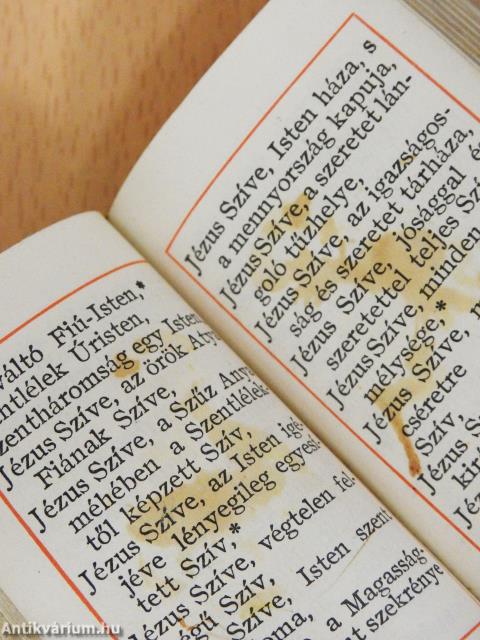 váltó Fiú-Isten,*
ntlélek Úristen,
zentháromság egy Isten
Jézus Szíve, az örök Atya
Fiának Szíve,
Jézus Szíve, a Szűz Anya
méhében a Szentlélek-
től képzett Szív,
Jézus Szíve, az Isten igé-
jéve lényegileg egyesí-
tett Szív,*
Jézus Szíve, végtelen fel-
ségű Szív,
Szíve, Isten szent
a Magasság-
szekrénye
Jézus Szíve, Isten háza, s
a mennyország kapuja,
Jézus Szíve, a szeretet lán-
goló tűzhelye,
Jézus Szíve, az igazságos-
ság és szeretet tárháza,
Jézus Szíve, jósággal é
szeretettel teljes Szí
Jézus Szíve, minden
mélysége,*
Jézus Szíve, m
cséretre
Szív,
Jézus S
kir
Jézus
Antikvárium.hu